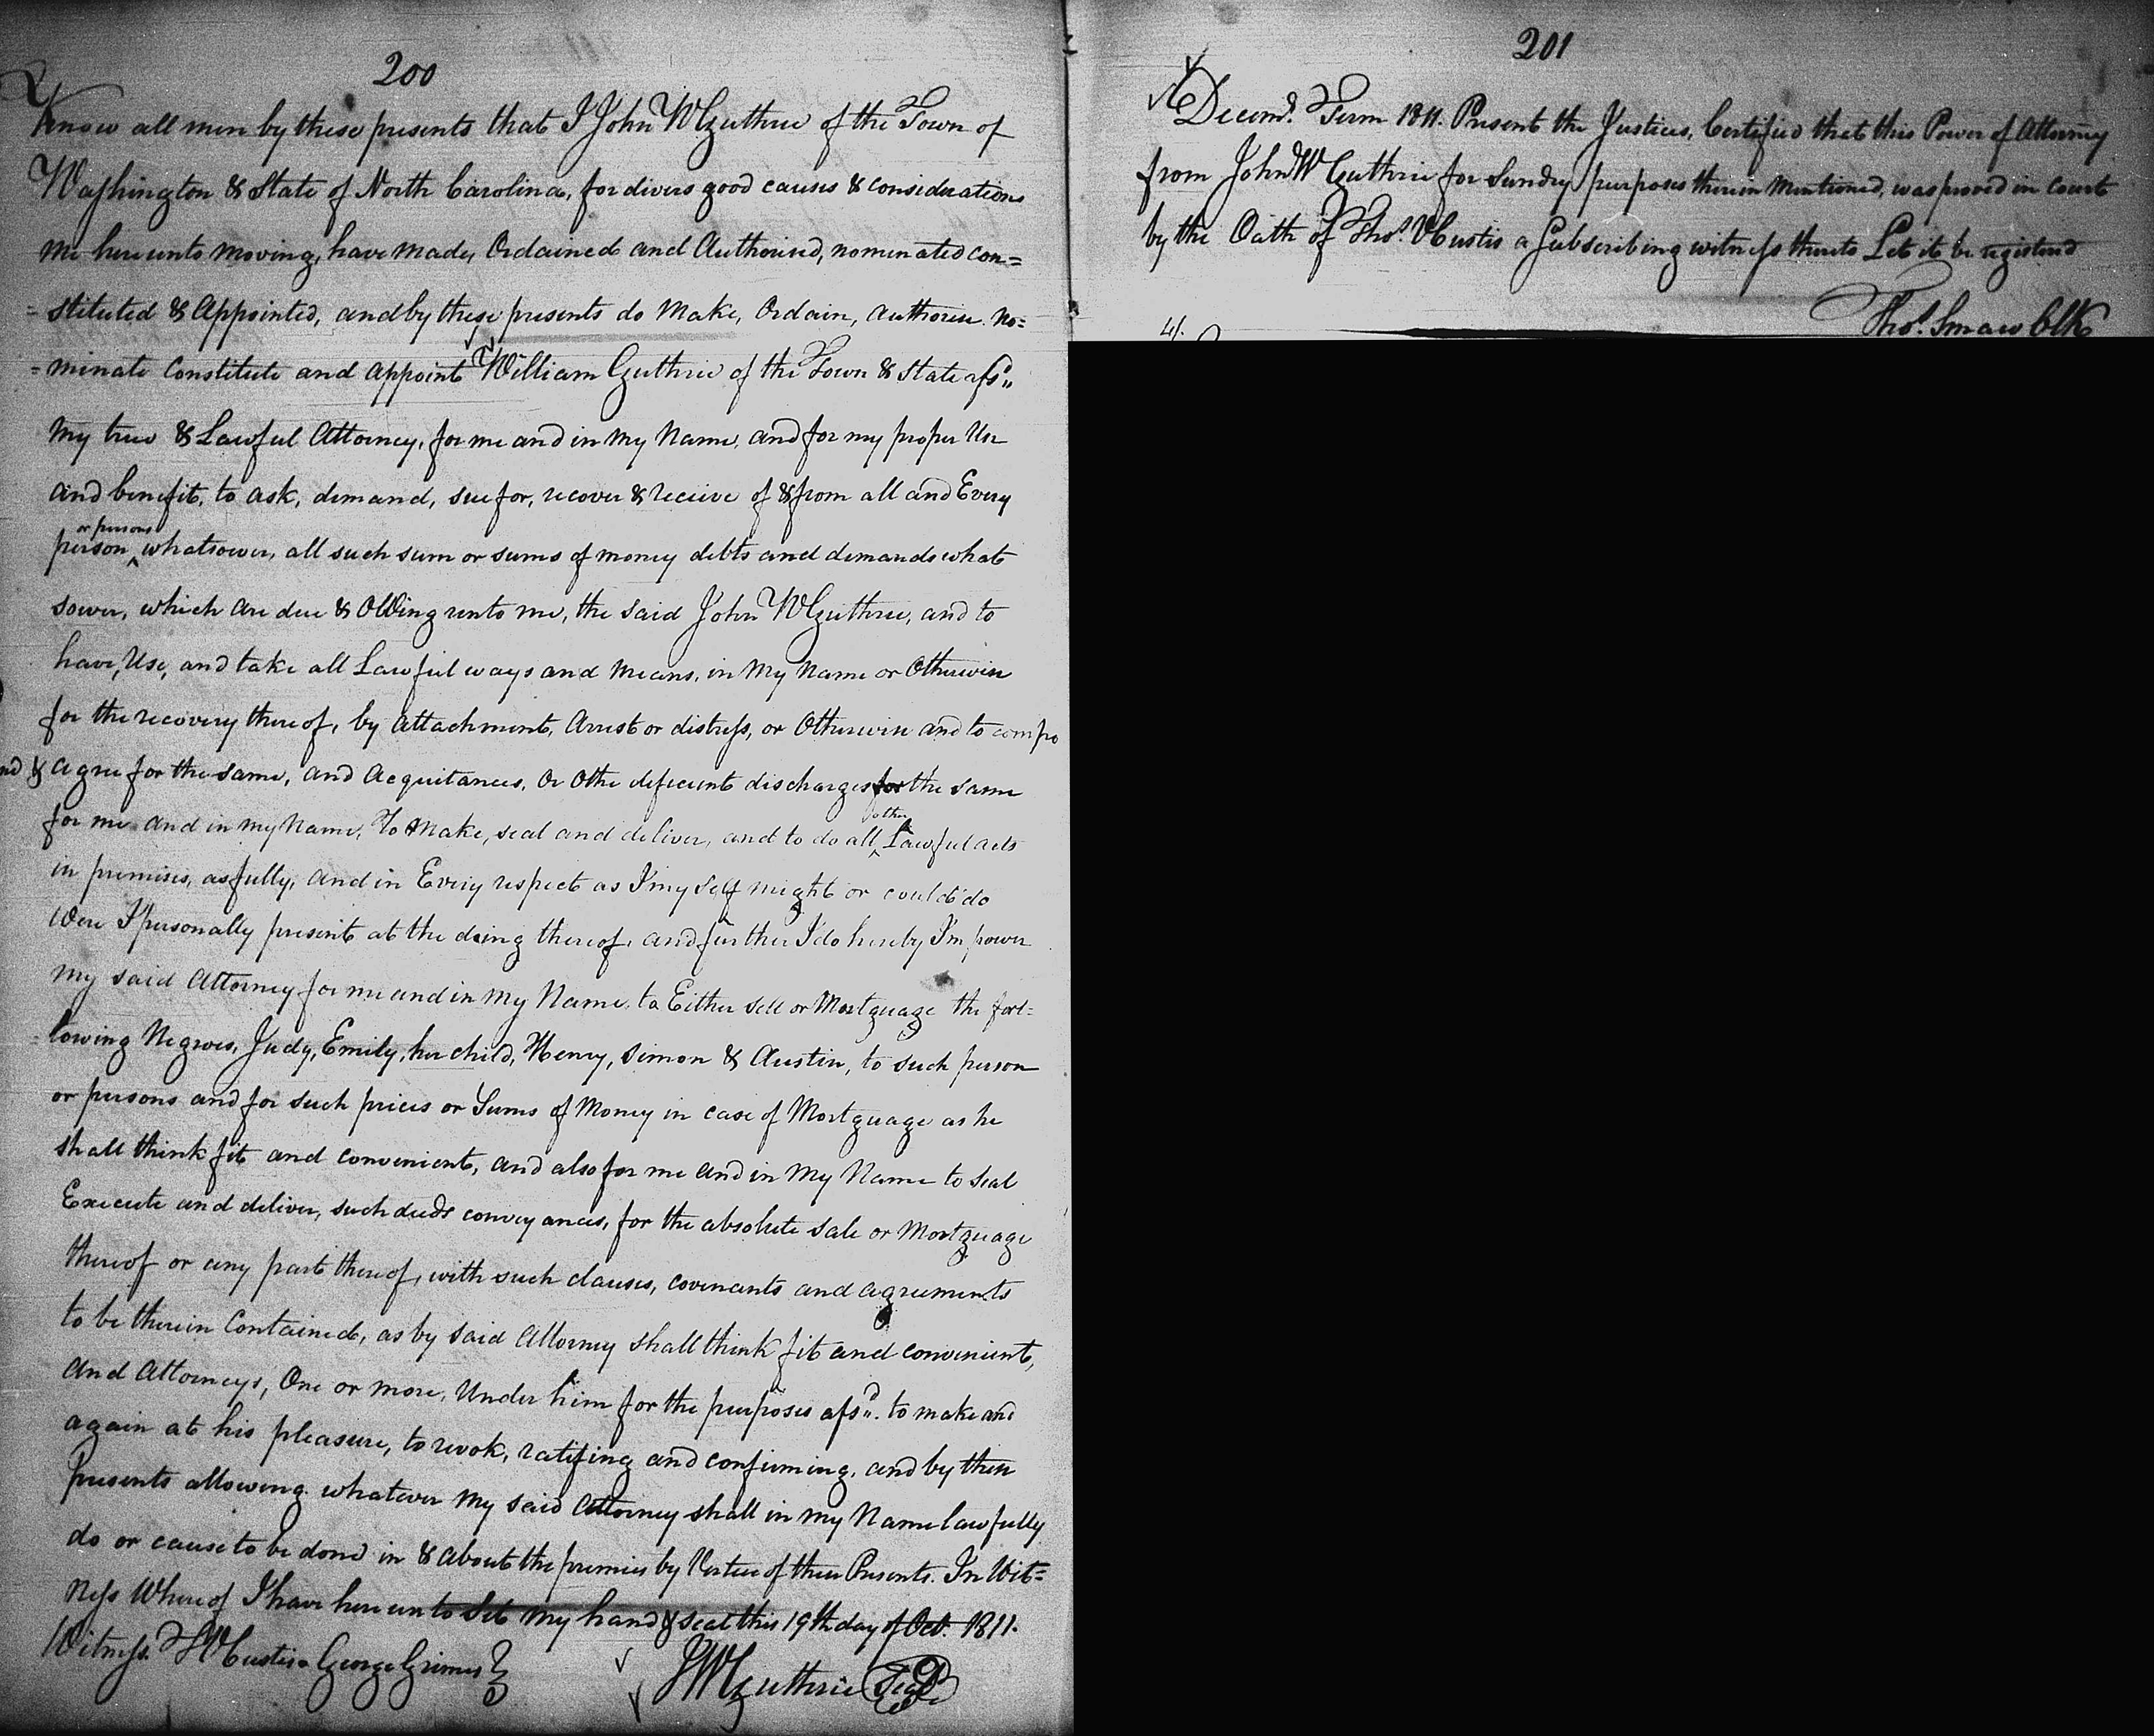 200
Know all men by these presents that I John W Guthrie of the Town of
Washington & State of North Carolina, for divers good causes & considerations
me hereunto moving, have made, Ordained and Authorised, nominated con=
=stituted & Appointed, and by these presents do Make, Ordain, Authorise no=
=minate Constitute and appoint William Guthrie of the Town & State afsd
my true & Lawful Attorney, for me and in my Name, and for my proper Use
and benefit, to ask, demand, sue for, recover & receive of & from all and Every
or persons
person ^ whatsoever, all such sum or sums of money debts and demands what
soever, which are due & OWing unto me, the said John W Guthrie, and to
have, Use, and take all Lawful ways and Means, in My Name or Otherwise
for the recovery thereof, by attachment, Arrest or distress, or Otherwise and to compo
nd & agree for the same, and Acquitances, Or Othe deficient discharges for the same
other
for me and in my Name, To Make, seal and deliver, and to do all ^ Lawful acts
in premises, as fully, and in Every respect as I myself might or could do
Were I personally present at the doing thereof, and further I do hereby Impower
my said Attorney for me and in My Name, to Either sell or Mortguage the fort=
=lowing Negroes, Judy, Emily, her child, Henry, Simon & Austin, to such person
or persons and for such prices or Sums of Money in case of Mortguage as he
shall think fit and convenient, and also for me and in My Name to Seal
Execute and deliver, such deeds conveyances, for the absolute Sale or Mortguage
thereof or any part thereof, with such clauses, covenants and agreements
to be therein Contained, as by said Attorney shall think fit and convenient,
And Attorneys, One or more, Under him for the purposes afsd. to make and
again at his pleasure, to revok, ratifing and confirming, and by these
presents allowing whatever My said Attorney shall in my Name lawfully
do or cause to be done in & about the premises by Vertue of these Presents. In Wit=
ness Whereof I have hereunto Set my hand & seal this 19th day of Oct. 1811.
Witness. TW Custis George Grimes
JW Guthrie Seal
201
Decemr. Term 1811. Present the Justices, Certified that this Power of Attorney
from John W Guthrie for Sundry purposes therein Mentioned, was proved in Court
by the Oath of Thos. W Custis a Subscribing witness thereto Let it be registerd
Thos. Smaw Clk